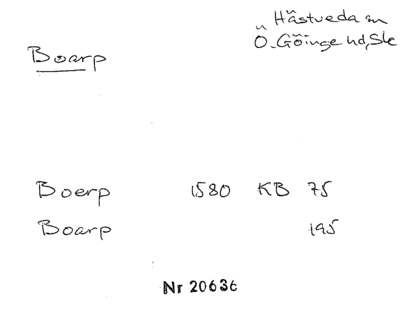 Hästveda sn
Ö. Göinge hd, Sk
Boarp
Boerp 1580 KB 75
Boarp 195
Nr 20636